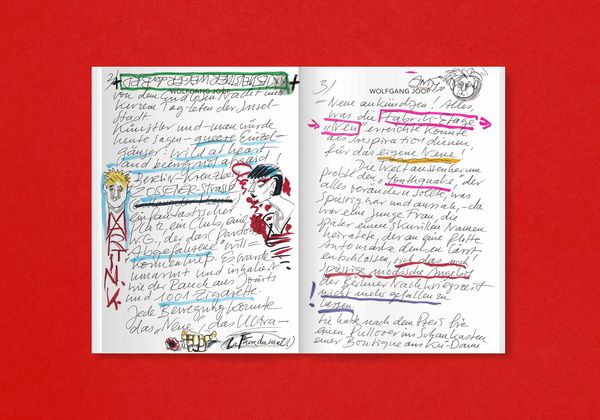 2/
WOLFGANG JOOP
von dem endlosen Nacht und
kurzem Tag leten der Insel-
Stadt
Künstler und – man würde
heute sagen – queere Einzel-
gänger: wild at heart
and being not afraid!
Berlin-Kreuzberg
ein fantastischer
Platz, ein Club, eine
W.G., der das Pandora
"Ausgelassene" will-
kommen hieß. Es wurde
umarmt und inhaliert
wie der Rauch aus Joints
und 1001 Zigarette.
Jede Bewegung konnte
das "Neue", das Ultra-
MARTIN K.
3/
WOLFGANG JOOP
– Neue ankündigen! Alles,
was die Fabrik-Etage
erreichte konnte
als Inspiration dienen,
für das eigene Neue!
Die Welt aussen herum
probte den "Youthquake", der
alles verändern sollte, was
spiessig war und aussah, – da
war eine junge Frau, die
später einen skurrilen Namen
heiratete, der an eine flotte
Automarke denken lässt.
entschlossen, sich das
spiessige modische Angebot
der Berliner Nachkriegszeit
nicht mehr gefallen zu
lassen
Sie hatte nach dem Preis für
einen Pullover im Schaukasten
einer Boutique am Ku-Damm